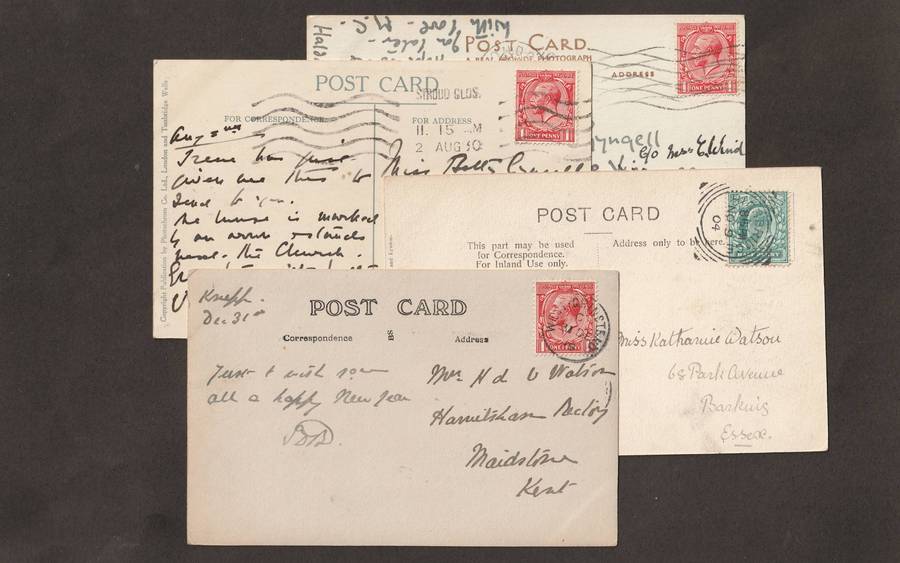 With love - M.C.
POST CARD
A REAL PHOTOGRAPH
ADDRESS
ONE PENNY
c/o Mrs E. Wind
Copyright Publication by Photochrom Co. Ltd., London and Tunbridge Wells.
POST CARD
FOR CORRESPONDENCE
FOR ADDRESS
STROUD GLOS.
11. 15 AM
2 AUG 30
ONE PENNY
Aug 2nd
Irene has just
given me this to
send to you.
The house is marked
by an arrow & stands
near the Church.
Miss Betty
POST CARD
This part may be used
for Correspondence.
For Inland Use only.
Address only to be here.
04
Miss Katharine Watson
68 Park Avenue
Barking
Essex.
Knepp.
Dec 31st
POST CARD
Correspondence
BS
Address
ONE PENNY
Just to wish you
all a happy New Year
BB.
Mrs H d V Watson
Harrietsham Rectory
Maidstone
Kent